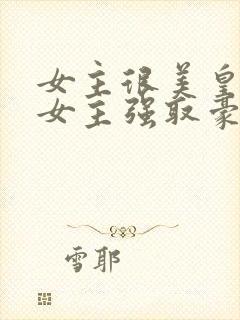 女主很美皇
女主强取豪
雪耶